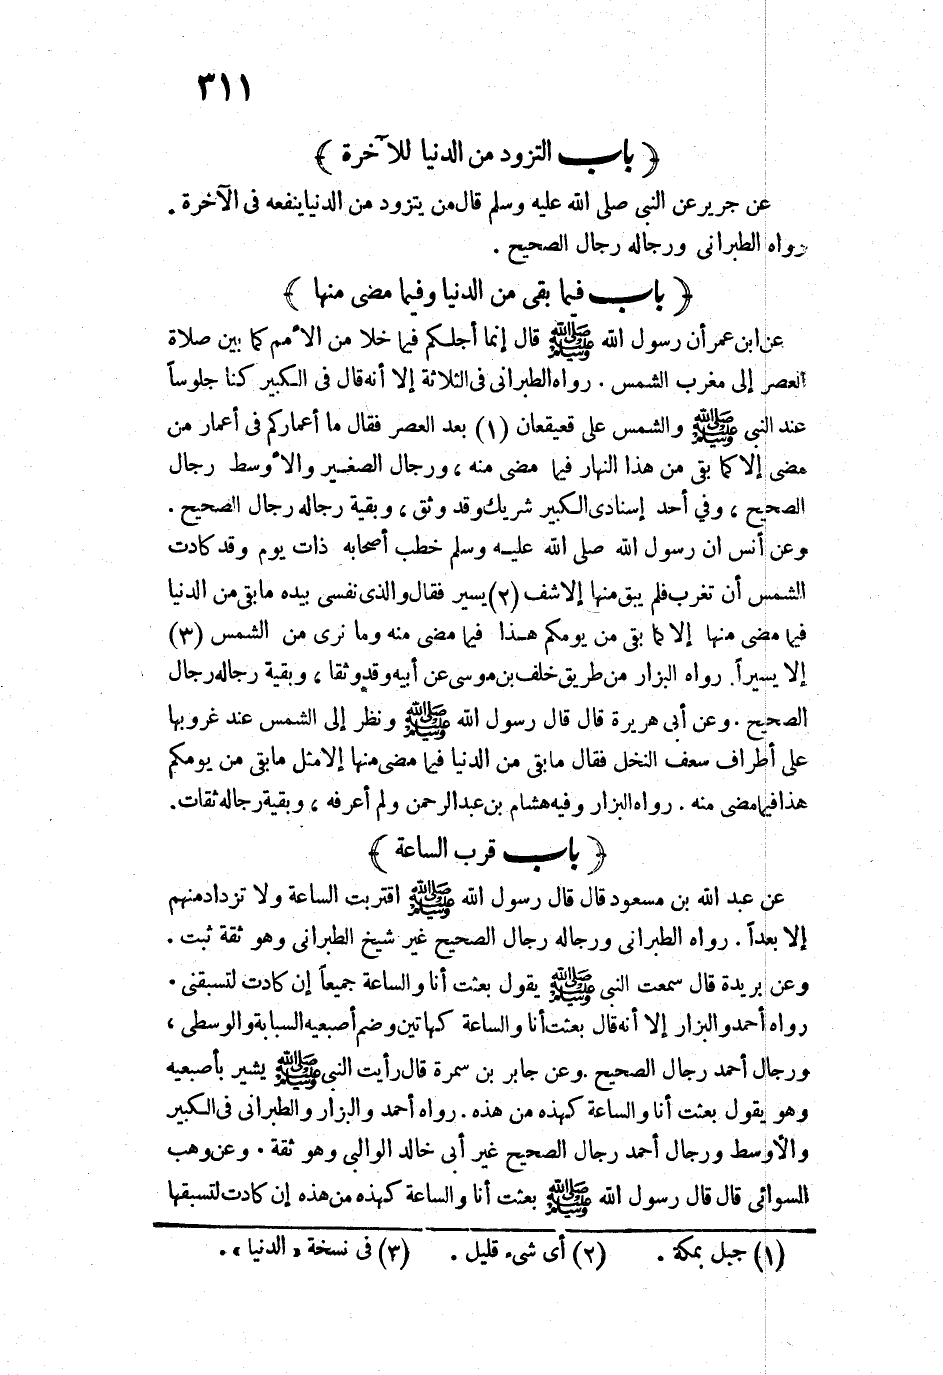 ٣١١
﴿ باب التزود من الدنيا للآخرة ﴾
عن جرير عن النبى صلى الله عليه وسلم قال من يتزود من الدنيا ينفعه فى الآخرة .
رواه الطبرانى ورجاله رجال الصحيح .
﴿ باب فيما بقى من الدنيا وفيما مضى منها ﴾
عن ابن عمر أن رسول الله ﷺ قال إنما أجلكم فيما خلا من الأمم كما بين صلاة
العصر إلى مغرب الشمس . رواه الطبرانى فى الثلاثة إلا أنه قال فى الكبير كنا جلوساً
عند النبى ﷺ والشمس على قعيقعان (١) بعد العصر فقال ما أعماركم فى أعمار من
مضى إلا كما بقى من هذا النهار فيما مضى منه ، ورجال الصغير والأوسط رجال
الصحيح ، وفي أحد إسنادى الكبير شريك وقد وثق ، وبقية رجاله رجال الصحيح .
وعن أنس ان رسول الله صلى الله عليه وسلم خطب أصحابه ذات يوم وقد كادت
الشمس أن تغرب فلم يبق منها إلا شف (٢) يسير فقال والذى نفسى بيده ما بقى من الدنيا
فيما مضى منها إلا كما بقى من يومكم هذا فيما مضى منه وما نرى من الشمس (٣)
إلا يسيراً . رواه البزار من طريق خلف بن موسى عن أبيه وقد وثقا ، وبقية رجاله رجال
الصحيح . وعن أبى هريرة قال قال رسول الله ﷺ ونظر إلى الشمس عند غروبها
على أطراف سعف النخل فقال ما بقى من الدنيا فيما مضى منها إلا مثل ما بقى من يومكم
هذا فيما مضى منه . رواه البزار وفيه هشام بن عبد الرحمن ولم أعرفه ، وبقية رجاله ثقات .
﴿ باب قرب الساعة ﴾
عن عبد الله بن مسعود قال قال رسول الله ﷺ اقتربت الساعة ولا تزداد منهم
إلا بعداً . رواه الطبرانى ورجاله رجال الصحيح غير شيخ الطبرانى وهو ثقة ثبت .
وعن بريدة قال سمعت النبى ﷺ يقول بعثت أنا والساعة جميعاً إن كادت لتسبقنى .
رواه أحمد والبزار إلا أنه قال بعثت أنا والساعة كهاتين وضم أصبعيه السبابة والوسطى ،
ورجال أحمد رجال الصحيح . وعن جابر بن سمرة قال رأيت النبى ﷺ يشير بأصبعيه
وهو يقول بعثت أنا والساعة كهذه من هذه . رواه أحمد والبزار والطبرانى فى الكبير
والأوسط ورجال أحمد رجال الصحيح غير أبى خالد الوالبى وهو ثقة . وعن وهب
السوائى قال قال رسول الله ﷺ بعثت أنا والساعة كهذه من هذه إن كادت لتسبقها
(١) جبل بمكة . (٢) أى شىء قليل . (٣) فى نسخة « الدنيا » .